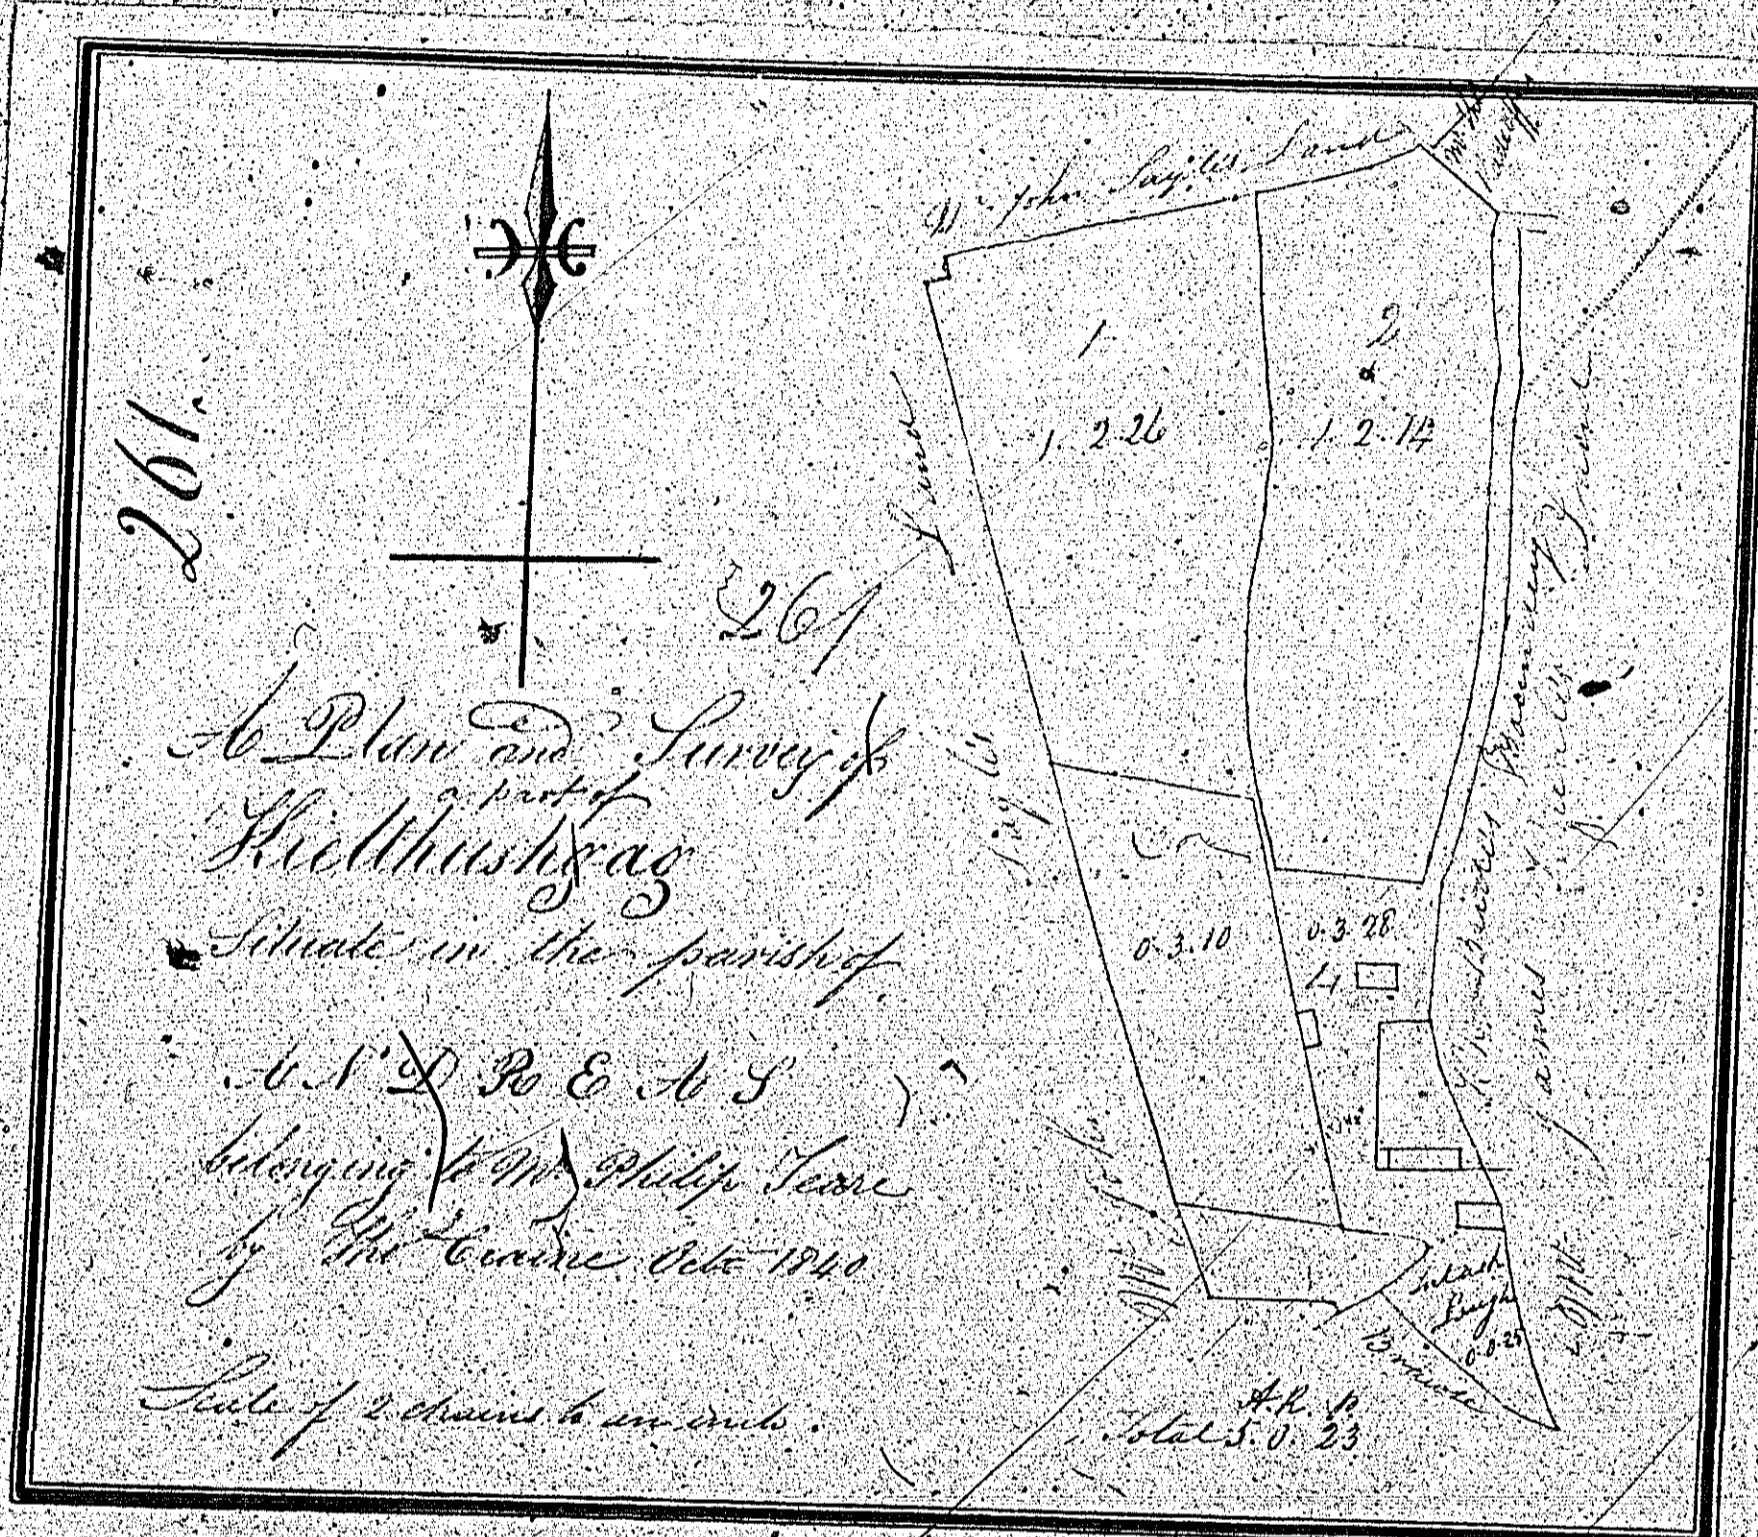 261.
261
A Plan and Survey of
a part of
Kiellthushgag
Situate in the parish of
ANDREAS
belonging to Mr Philip Teare
by Thos Craine Octr 1840
Scale of 2 chains to an inch.
Mr John Sayle's Land
1
1. 2. 26
2
1. 2. 14
0. 3. 10
0. 3. 28
4
0. 0. 25
Mr John Sayle's Land
Mr James
A. R. P.
Total 5. 0. 23